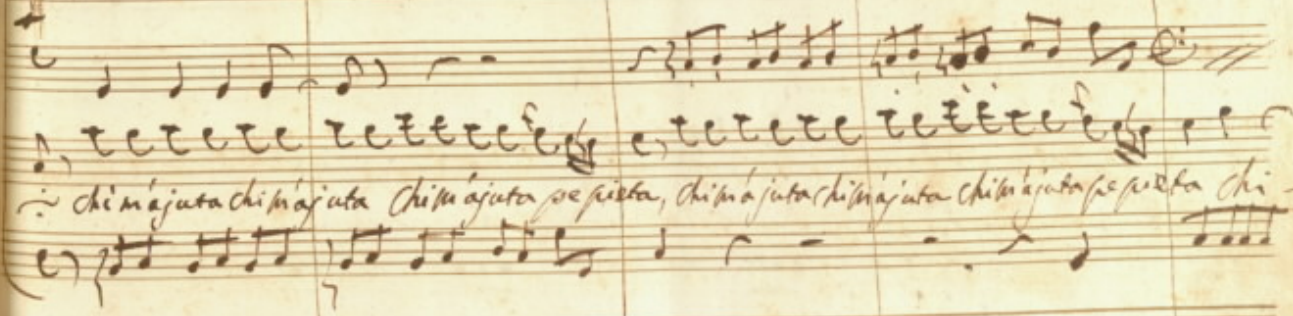 chi m'ajuta chi m'ajuta chi m'ajuta pe pieta, chi m'ajuta chi m'ajuta chi m'ajuta pe pieta chi